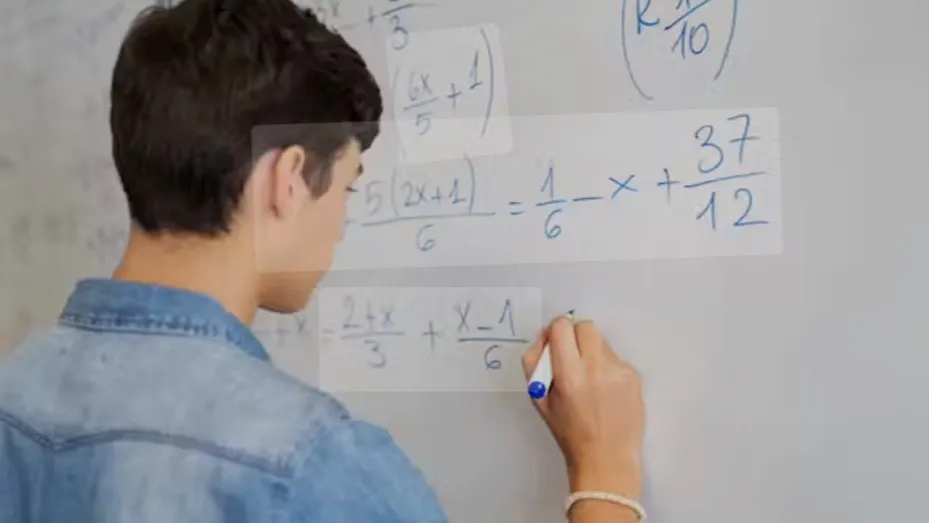 + 3
(R 1/10)
(6x/5 + 1)
- 5(2x+1)/6 = 1/6 - x + 37/12
+ x - 2+x/3 + x-1/6